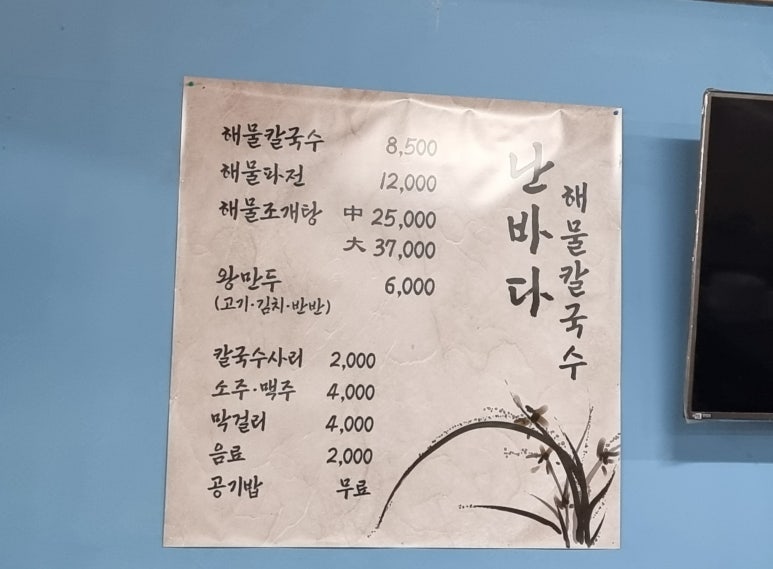 해물칼국수 8,500
해물파전 12,000
해물조개탕 中 25,000
大 37,000
왕만두 6,000
(고기·김치·반반)
칼국수사리 2,000
소주·맥주 4,000
막걸리 4,000
음료 2,000
공기밥 무료
난바다
해물칼국수